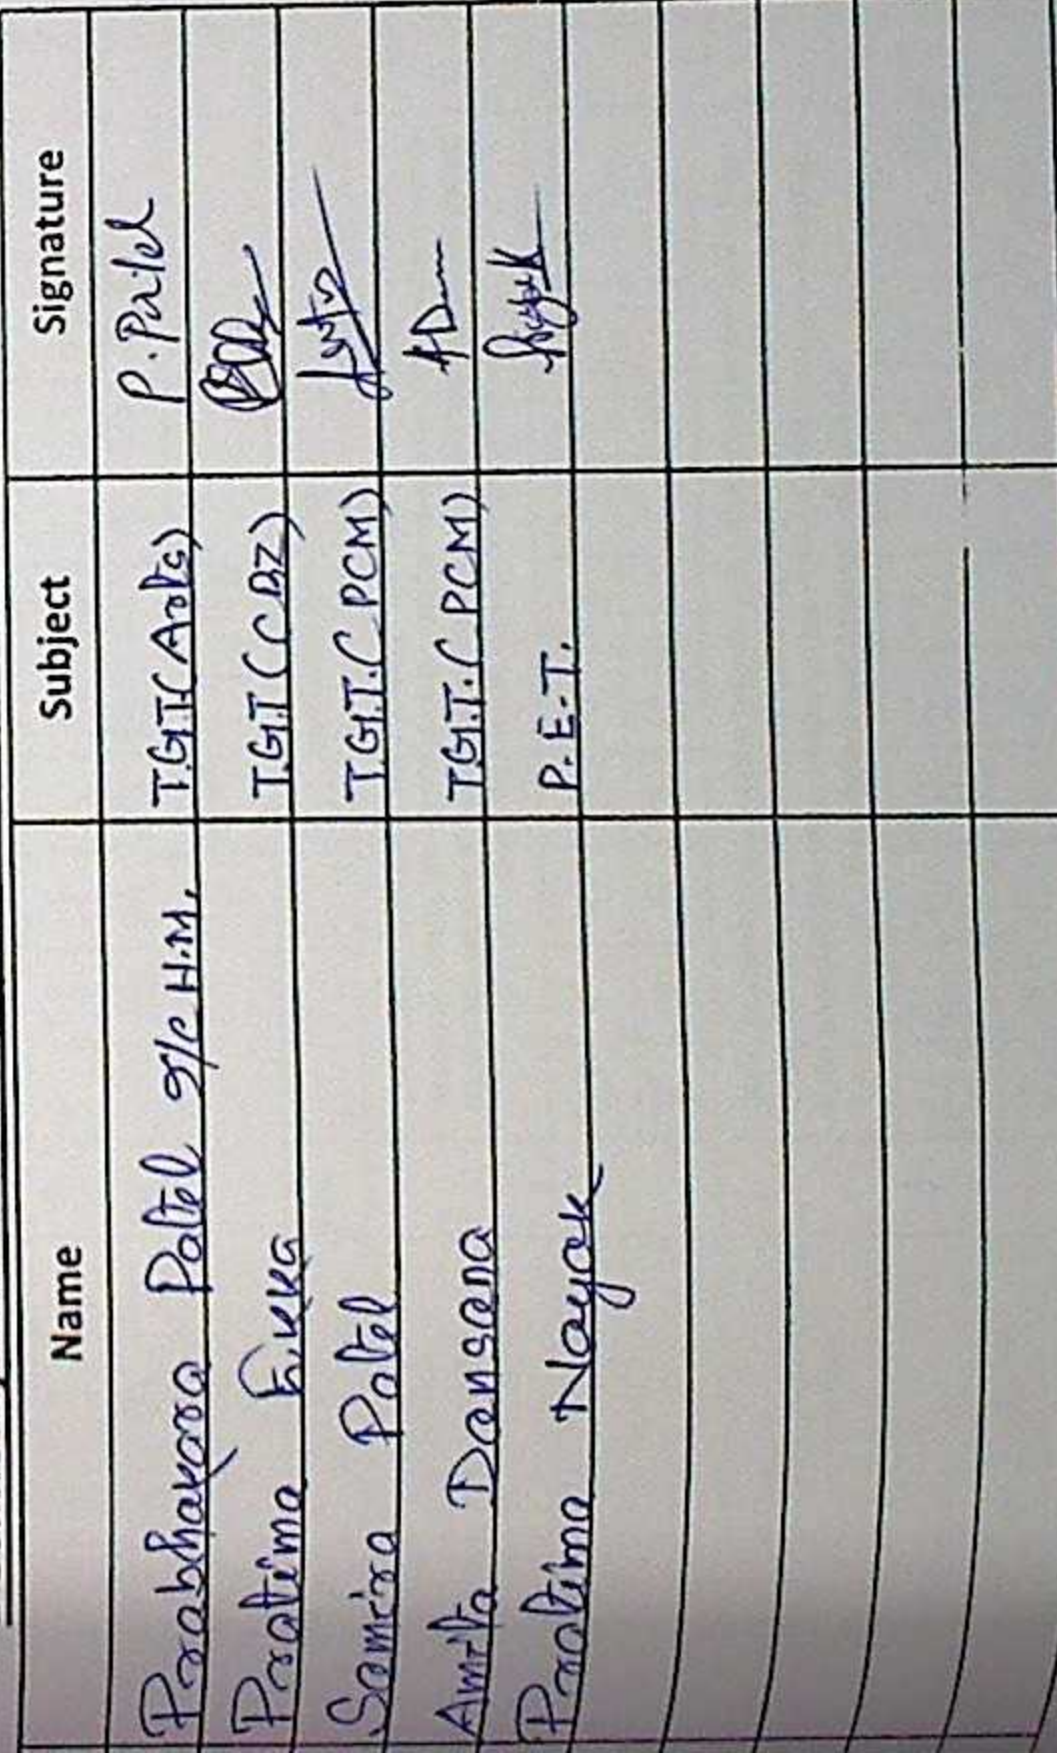 Name Subject Signature
Prabhakara Patel I/C H.M. T.G.T.(Arts) P. Patel
Pratima Ekka T.G.T (CBZ)
Samira Patel T.G.T. (PCM)
Amita Dansana T.G.T. (PCM) AD
Pratima Nayak P.E.T. Nayak